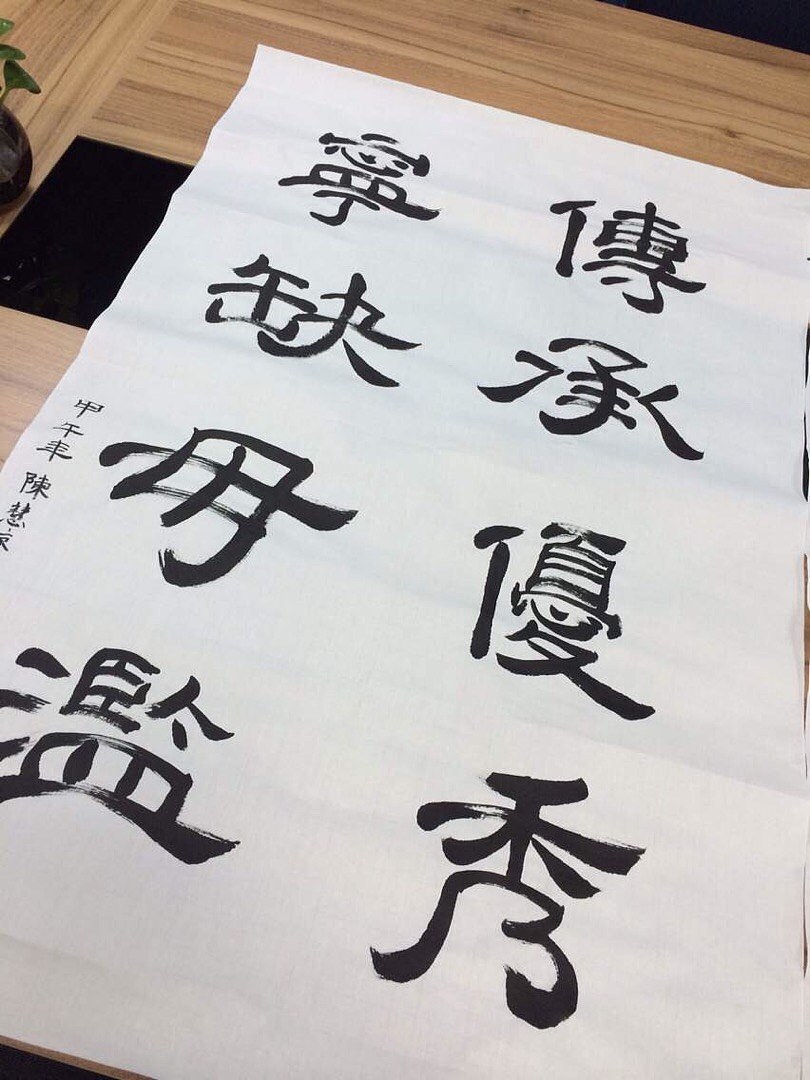 傳承優秀
寧缺毋濫
甲午年 陳慧